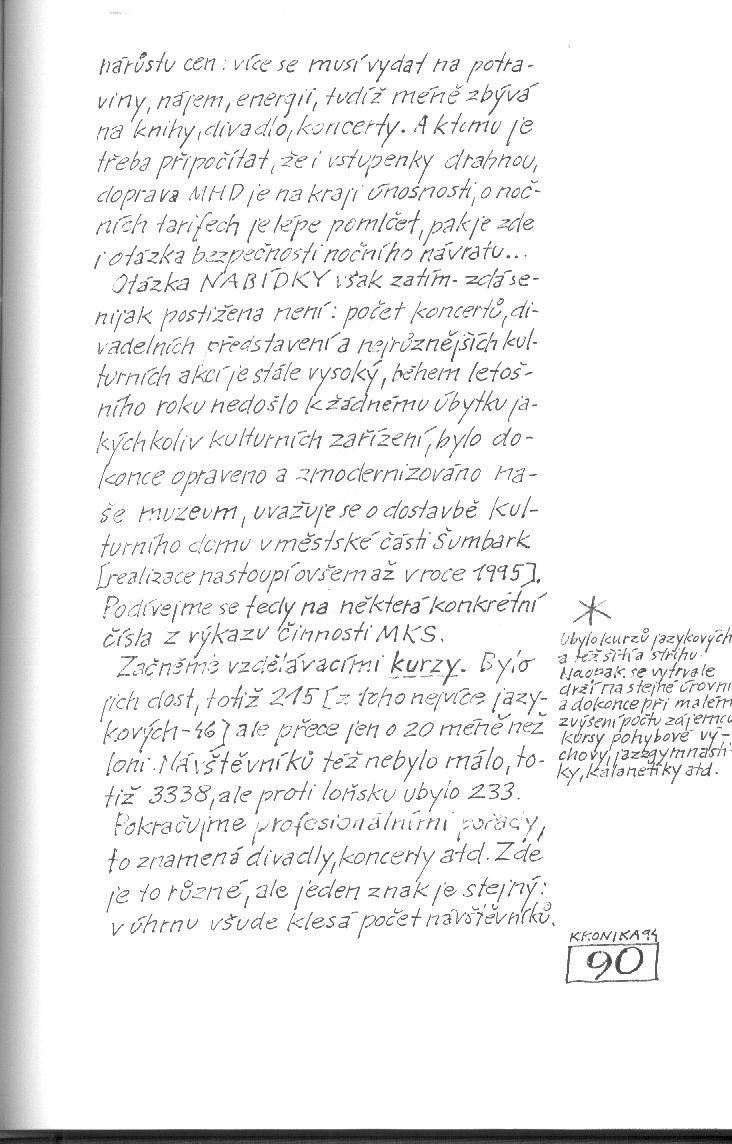 nárůstu cen: více se musí vydat na potra-
viny, nájem, energii, tudíž méně zbývá
na knihy, divadlo, koncerty. A k tomu je
třeba připočítat, že i vstupenky drahnou,
doprava MHD je na kraji únosnosti, o noč-
ních tarifech je lépe pomlčet, pak je zde
i otázka bezpečnosti nočního návratu...
Otázka NABÍDKY však zatím- zdá se-
nijak postižena není: počet koncertů, di-
vadelních představení a nejrůznějších kul-
turních akcí je stále vysoký, během letoš-
ního roku nedošlo k žádnému úbytku ja-
kýchkoliv kulturních zařízení, bylo do-
konce opraveno a zmodernizováno na-
še muzeum, uvažuje se o dostavbě kul-
turního domu v městské části Šumbark
[realizace nastoupí ovšem až v roce 1995].
Podívejme se tedy na některá konkrétní
čísla z výkazu činnosti MKS.
Začněme vzdělávacími kurzy. Bylo
jich dost, totiž 215 [z toho nejvíce jazy-
kových-46] ale přece jen o 20 méně než
loni. Návštěvníků též nebylo málo, to-
tiž 3338, ale proti loňsku ubylo 233.
Pokračujme profesionálními pořady,
to znamená divadly, koncerty atd. Zde
je to různé, ale jeden znak je stejný:
v úhrnu všude klesá počet návštěvníků.
*
Ubylo kurzů jazykových
a též šití a střihu.
Naopak se vytrvale
drží na stejné úrovni
a dokonce při malém
zvýšení počtu zájemců
kursy pohybové vý-
chovy, jazzgymnasti-
ky, kalanetiky atd.
KRONIKA 94
90